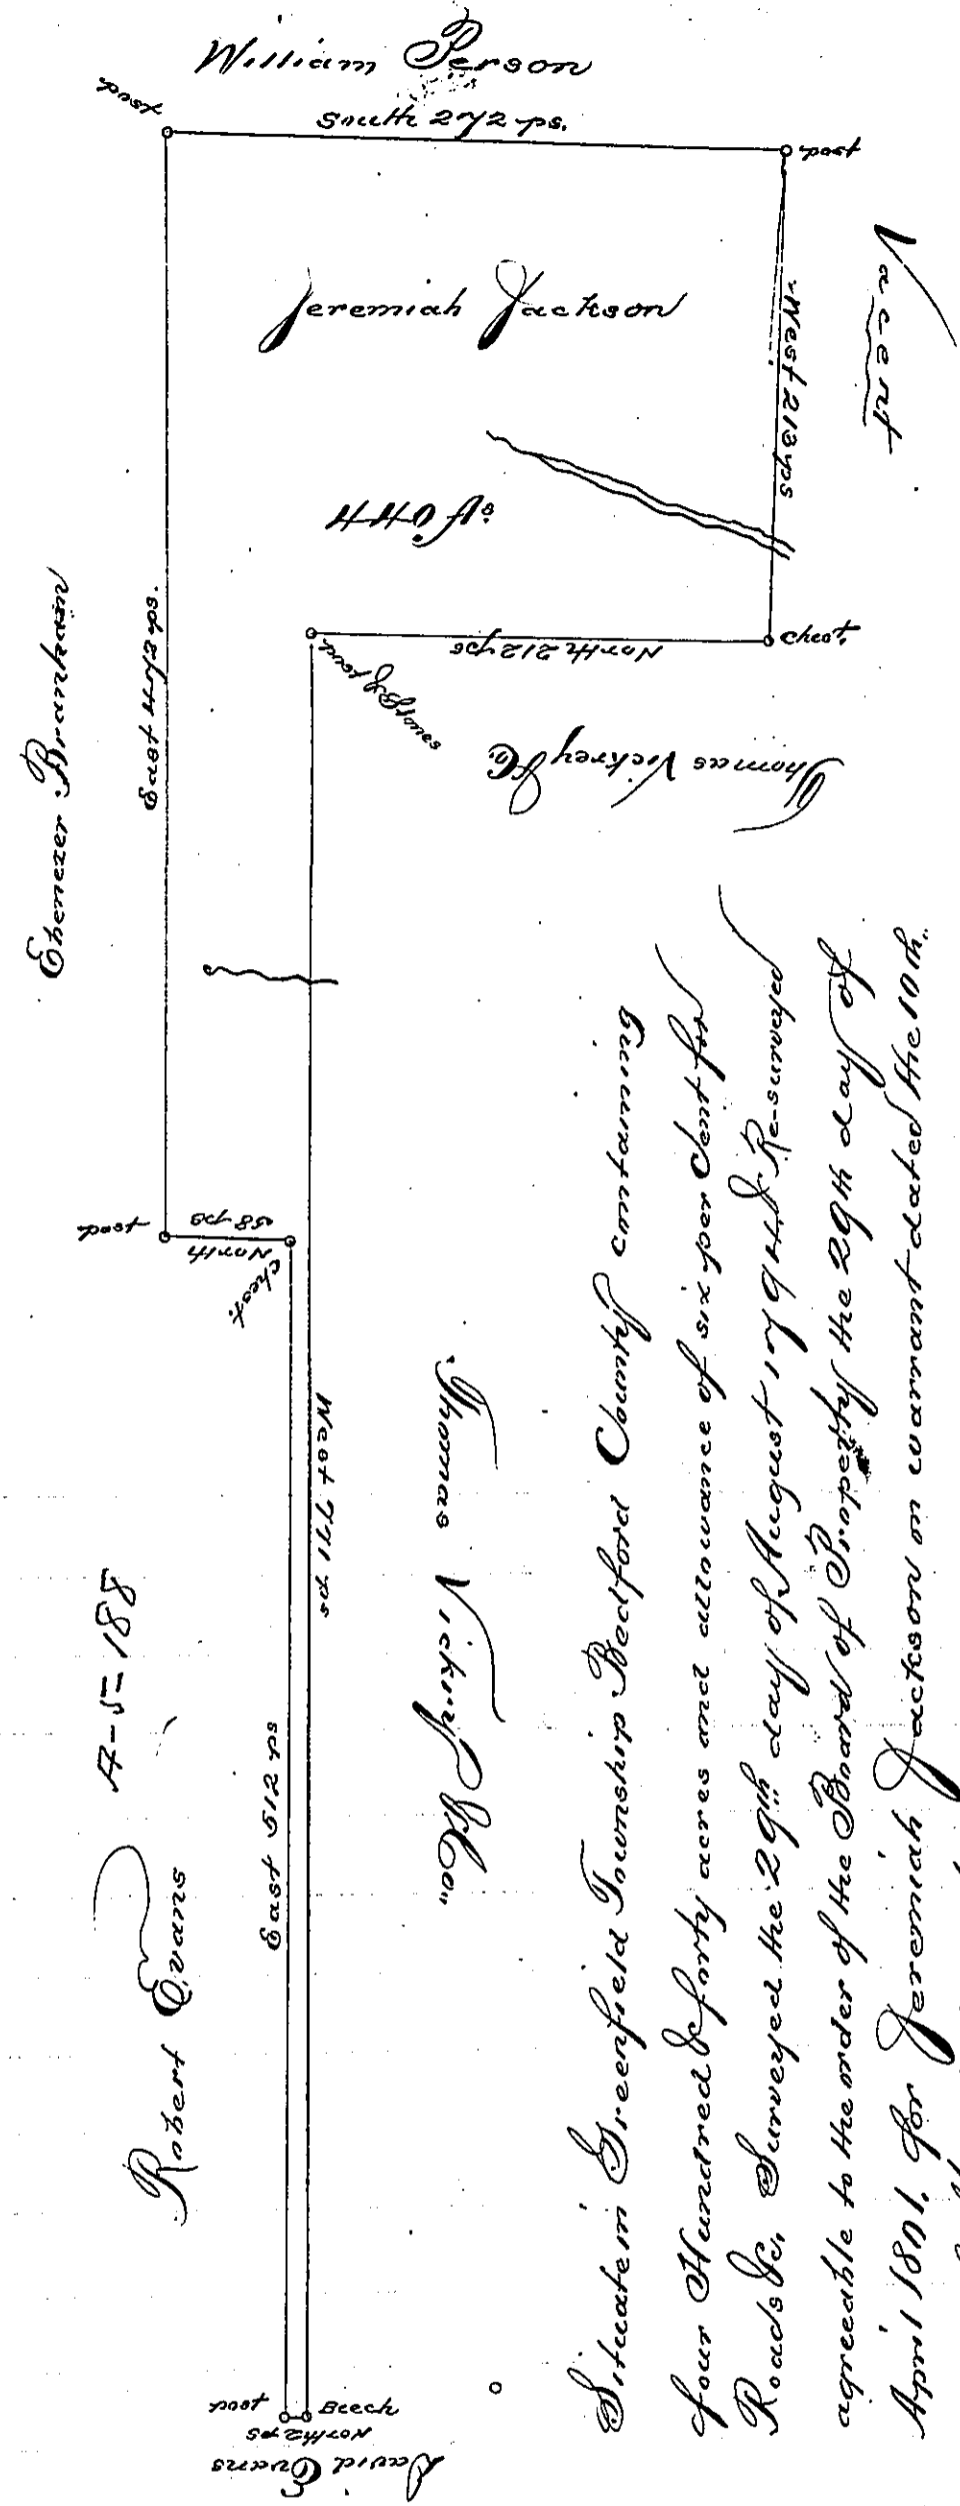 William Person
post
South 272 ps.
post
Jeremiah Jackson
West 212 ps
Vacent
Ebenezer Branham
East 472 ps.
North 212 ps
Chest.
Thomas Vickrey & Co.
post
North 58 ps
Chest.
West 771 ps
Thomas Vickrey & Co.
A-5-188
Robert Evans
East 512 ps
post
North 2 ps
Beech
David Evans
Situate in Greenfield Township Bedford County containing
four Hundred & forty acres and allowance of six per Cent for
Roads &c. Surveyed the 29th day of August 1794 & Re-surveyed
agreeable to the order of the Board of Property the 29th day of
April 1801, for Jeremiah Jackson on warrant dated the 10th.